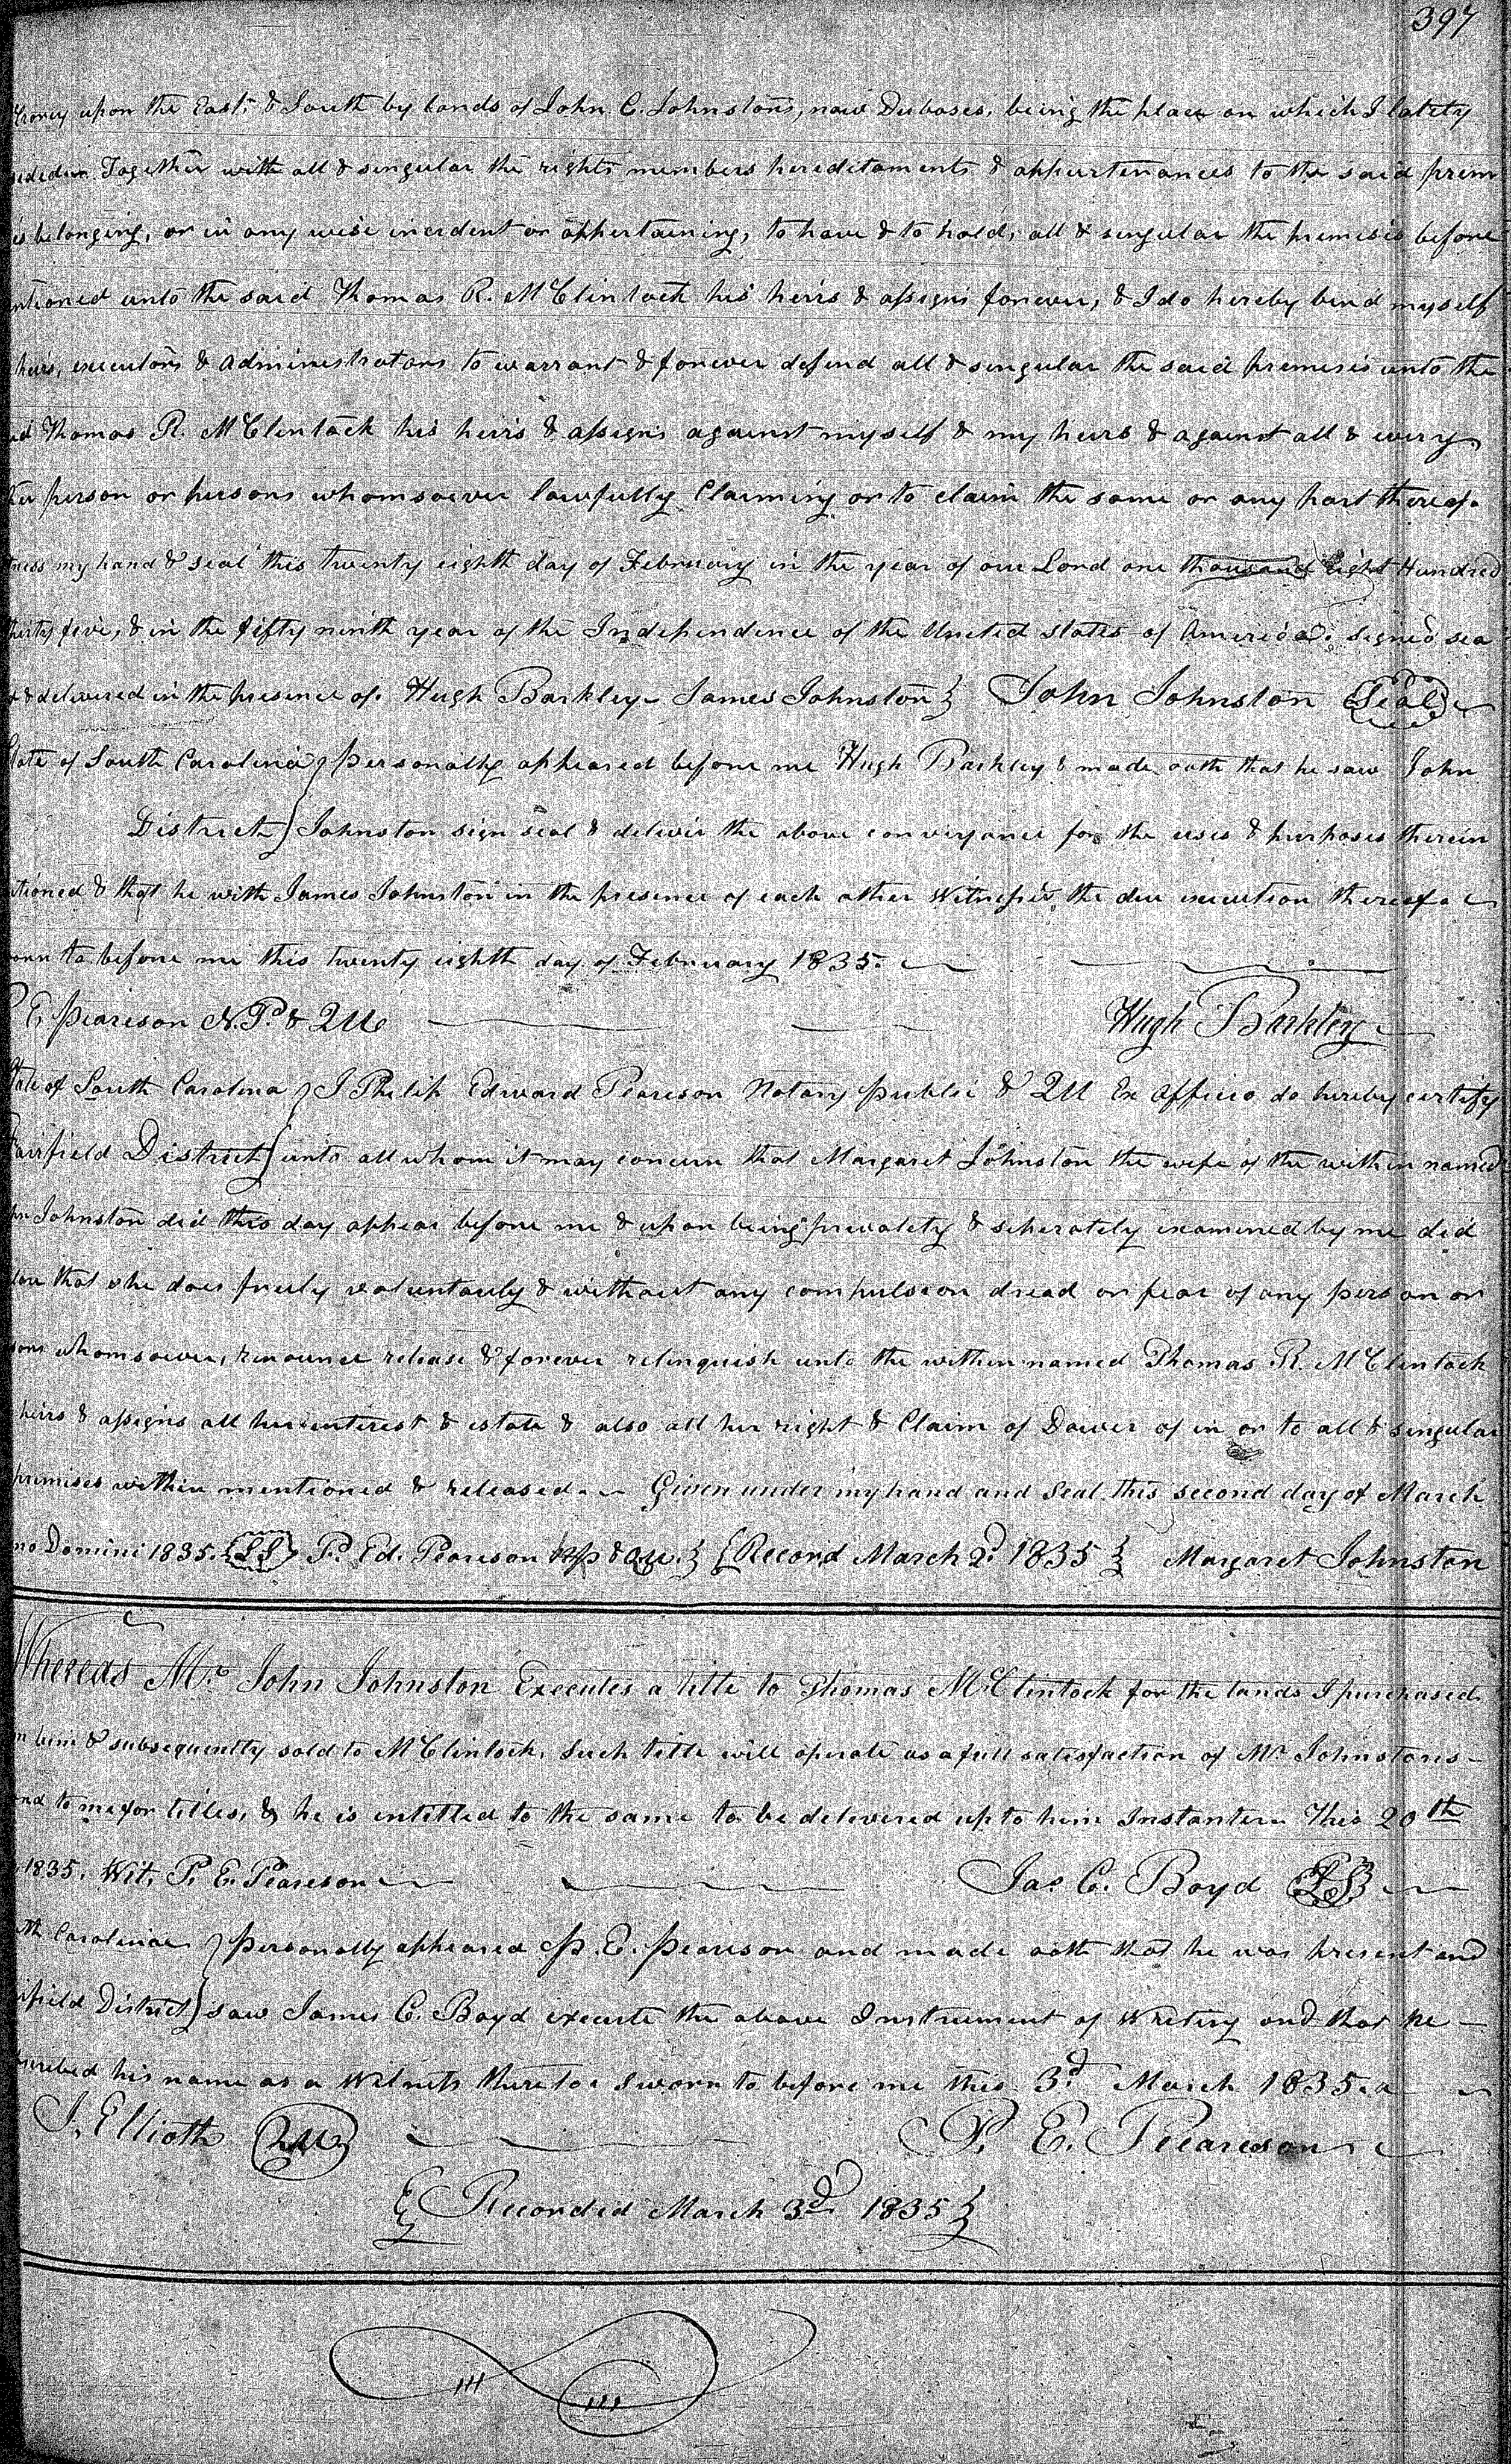 397
upon the East, & South by lands of John C. Johnston's, now Duboses, being the place on which I lately
Together with all & singular the rights members hereditaments & appurtenances to the said prem
es belonging, or in any wise incident or appertaining, to have & to hold, all & singular the premises before
ntioned unto the said Thomas R. McClintock his heirs & assigns forever, & I do hereby bind myself
heirs, executors & administrators to warrant & forever defend all & singular the said premises unto the
id Thomas R. McClintock his heirs & assigns against myself & my heirs & against all & every
her person or persons whomsoever lawfully Claiming or to claim the same or any part thereof.
tness my hand & seal this twenty eighth day of February in the year of our Lord one thousand Eight Hundred
thirty five, & in the fifty ninth year of the Independence of the United States of America. signed sea
d & delivered in the presence of. Hugh Barkley James Johnston } John Johnston (Seal)
State of South Carolina } personally appeared before me Hugh Barkley & made oath that he saw John
District } Johnston sign seal & deliver the above conveyance for the uses & purposes therein
tioned & that he with James Johnston in the presence of each other Witnessed the due execution thereof.
orn to before me this twenty eighth day of February 1835.
P E, Pearson N.P. & QU Hugh Barkley
State of South Carolina } I Philip Edward Pearson Notary public & QU Ex officio do hereby certify
Fairfield District } unto all whom it may concern that Margaret Johnston the wife of the within named
hn Johnston did this day appear before me & upon being privately & seperately examined by me did
lare that she does freely voluntarily & without any compulsion dread or fear of any person or
sons whomsoever, renounce release & forever relinquish unto the within named Thomas R. McClintock
heirs & assigns all her interest & estate & also all her right & Claim of Dower of in or to all & singular
premises within mentioned & released. Given under my hand and Seal this second day of March
no Domini 1835. {LS} P. Ed. Pearson NP & QU. } {Record March 2d 1835 } Margaret Johnston
Whereas Mr. John Johnston Executes a title to Thomas McClintock for the lands I purchased
m him & subsequently sold to McClintock. Such title will operate as a full satisfaction of Mr Johnstons
ond to me for titles, & he is entitled to the same to be delivered up to him Instanter. This 20th
1835. Wit. P. E. Pearson Jas C. Boyd LS
uth Carolina } personally appeared P. E. Pearson and made oath that he was present and
irfield District } saw James C. Boyd execute the above Instrument of Writing and that he
bscribed his name as a Witness thereto. Sworn to before me this 3d March 1835.
J. Elliott QU P. E. Pearson
{ Recorded March 3d 1835 }